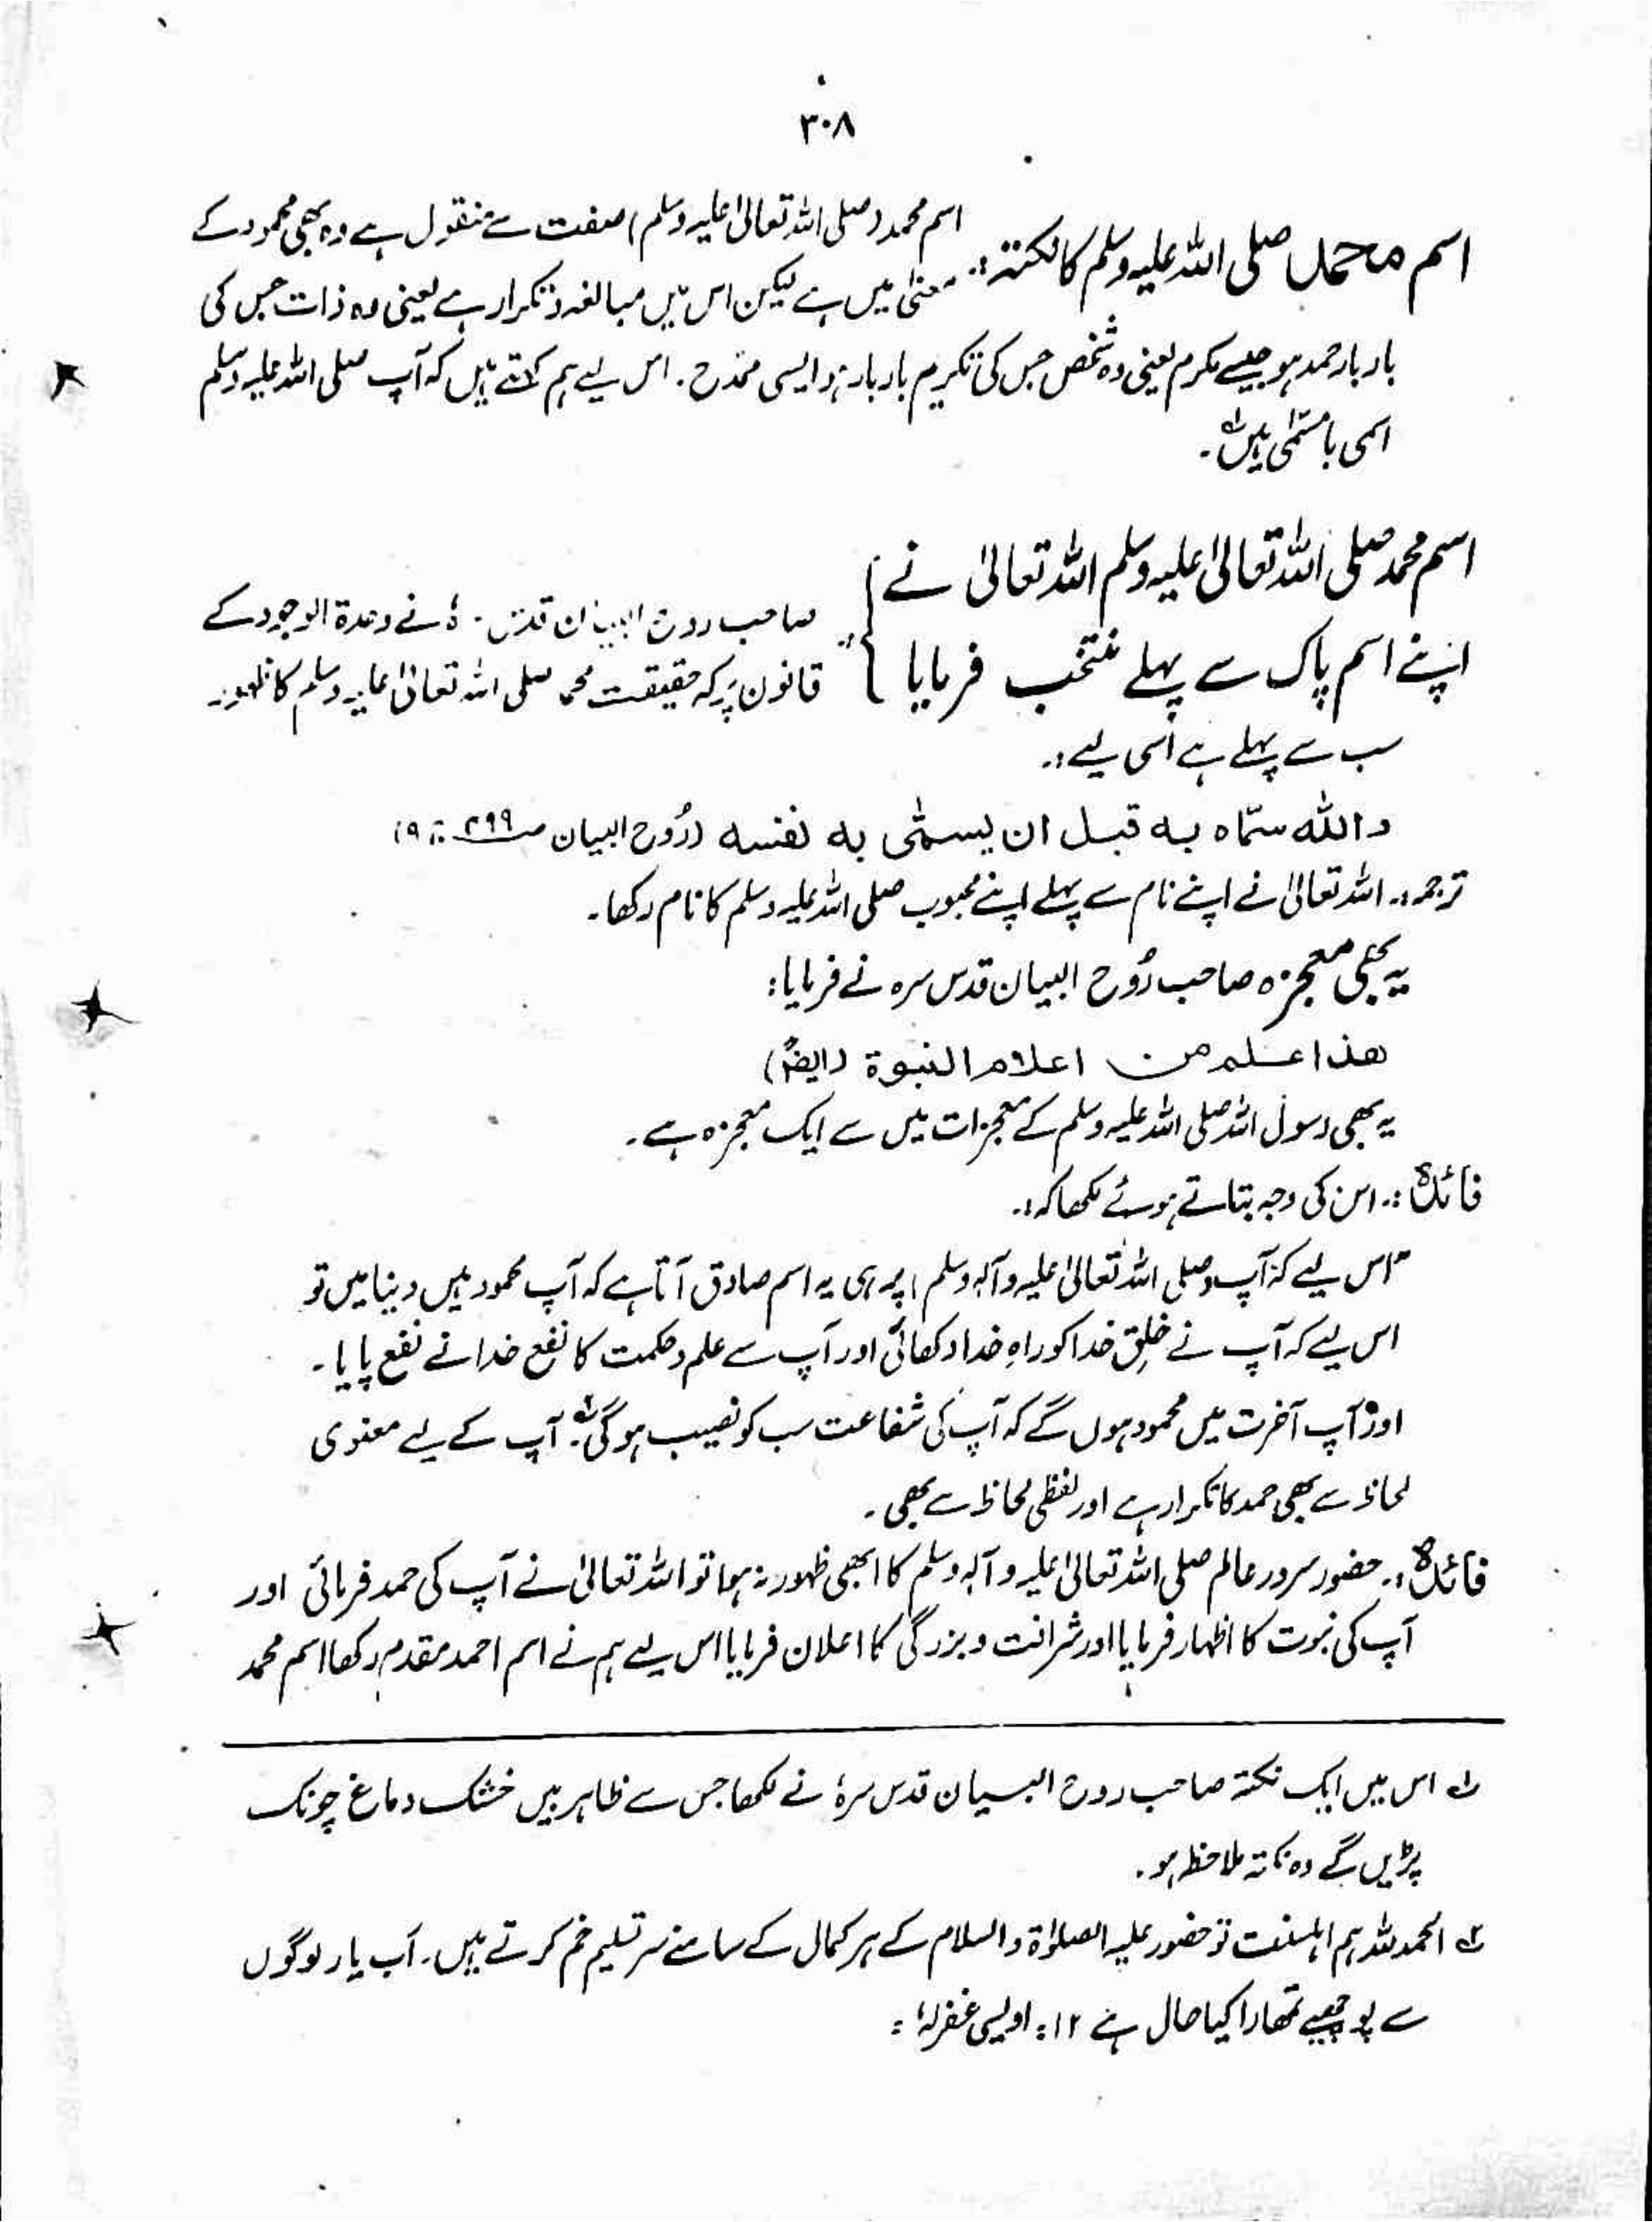 ۳۰۸
اسم محمد صلی اللہ علیہ وسلم کا نکتہ:۔ اسم محمد (صلی اللہ تعالیٰ علیہ وسلم) صفت سے منقول ہے وہ بھی محمود کے
معنیٰ میں ہے لیکن اس میں مبالغہ و تکرار ہے یعنی وہ ذات جس کی
بار بار حمد ہو جیسے مکرم یعنی وہ شخص جس کی تکریم بار بار ہو ایسی ممدح۔ اس لیے ہم کہتے ہیں کہ آپ صلی اللہ علیہ وسلم
اسمی بامسمّٰی ہیں؎۱۔
اسم محمد صلی اللہ تعالیٰ علیہ وسلم اللہ تعالیٰ نے
اپنے اسم پاک سے پہلے منتخب فرمایا
صاحب روح البیان قدس سرہٗ نے وحدۃ الوجود کے
قانون پر کہ حقیقت محمد صلی اللہ تعالیٰ علیہ وسلم کا ظہور
سب سے پہلے ہے اسی لیے:۔
واللہ سمّاہ بہ قبل ان یسمّٰی بہ نفسہ (رُوح البیان ص ۴۹۹ ج ۹)
ترجمہ:۔ اللہ تعالیٰ نے اپنے نام سے پہلے اپنے محبوب صلی اللہ علیہ وسلم کا نام رکھا۔
یہ بھی معجزہ صاحب رُوح البیان قدس سرہ نے فرمایا:
ھذا علم من اعلام النبوۃ (ایضاً)
یہ بھی رسول اللہ صلی اللہ علیہ وسلم کے معجزات میں سے ایک معجزہ ہے۔
فائدہ:۔ اس کی وجہ بتاتے ہوئے لکھا کہ:۔
"اس لیے کہ آپ (صلی اللہ تعالیٰ علیہ وآلہ وسلم) پر ہی یہ اسم صادق آتا ہے کہ آپ محمود ہیں دنیا میں تو
اس لیے کہ آپ نے خلقِ خدا کو راہِ خدا دکھائی اور آپ سے علم و حکمت کا نفع خدا نے نفع پایا۔
اور آپ آخرت میں محمود ہوں گے کہ آپ کی شفاعت سب کو نصیب ہو گی؎۲۔ آپ کے لیے معنوی
لحاظ سے بھی حمد کا تکرار ہے اور لفظی لحاظ سے بھی۔
فائدہ:۔ حضور سرور عالم صلی اللہ تعالیٰ علیہ وآلہ وسلم کا ابھی ظہور نہ ہوا تو اللہ تعالیٰ نے آپ کی حمد فرمائی اور
آپ کی نبوت کا اظہار فرمایا اور شرافت و بزرگی کا اعلان فرمایا اس لیے ہم نے اسم احمد مقدم رکھا اسم محمد
؎۱ اس میں ایک نکتہ صاحب روح البیان قدس سرہٗ نے لکھا جس سے ظاہر بیں خشک دماغ چونک
پڑیں گے وہ نکتہ ملاحظہ ہو۔
؎۲ الحمدللہ ہم اہلسنت تو حضور علیہ الصلوٰۃ والسلام کے ہر کمال کے سامنے سر تسلیم خم کرتے ہیں۔ اب یار لوگوں
سے پوچھیے تمھارا کیا حال ہے ۱۲: اویسی غفرلہٗ: